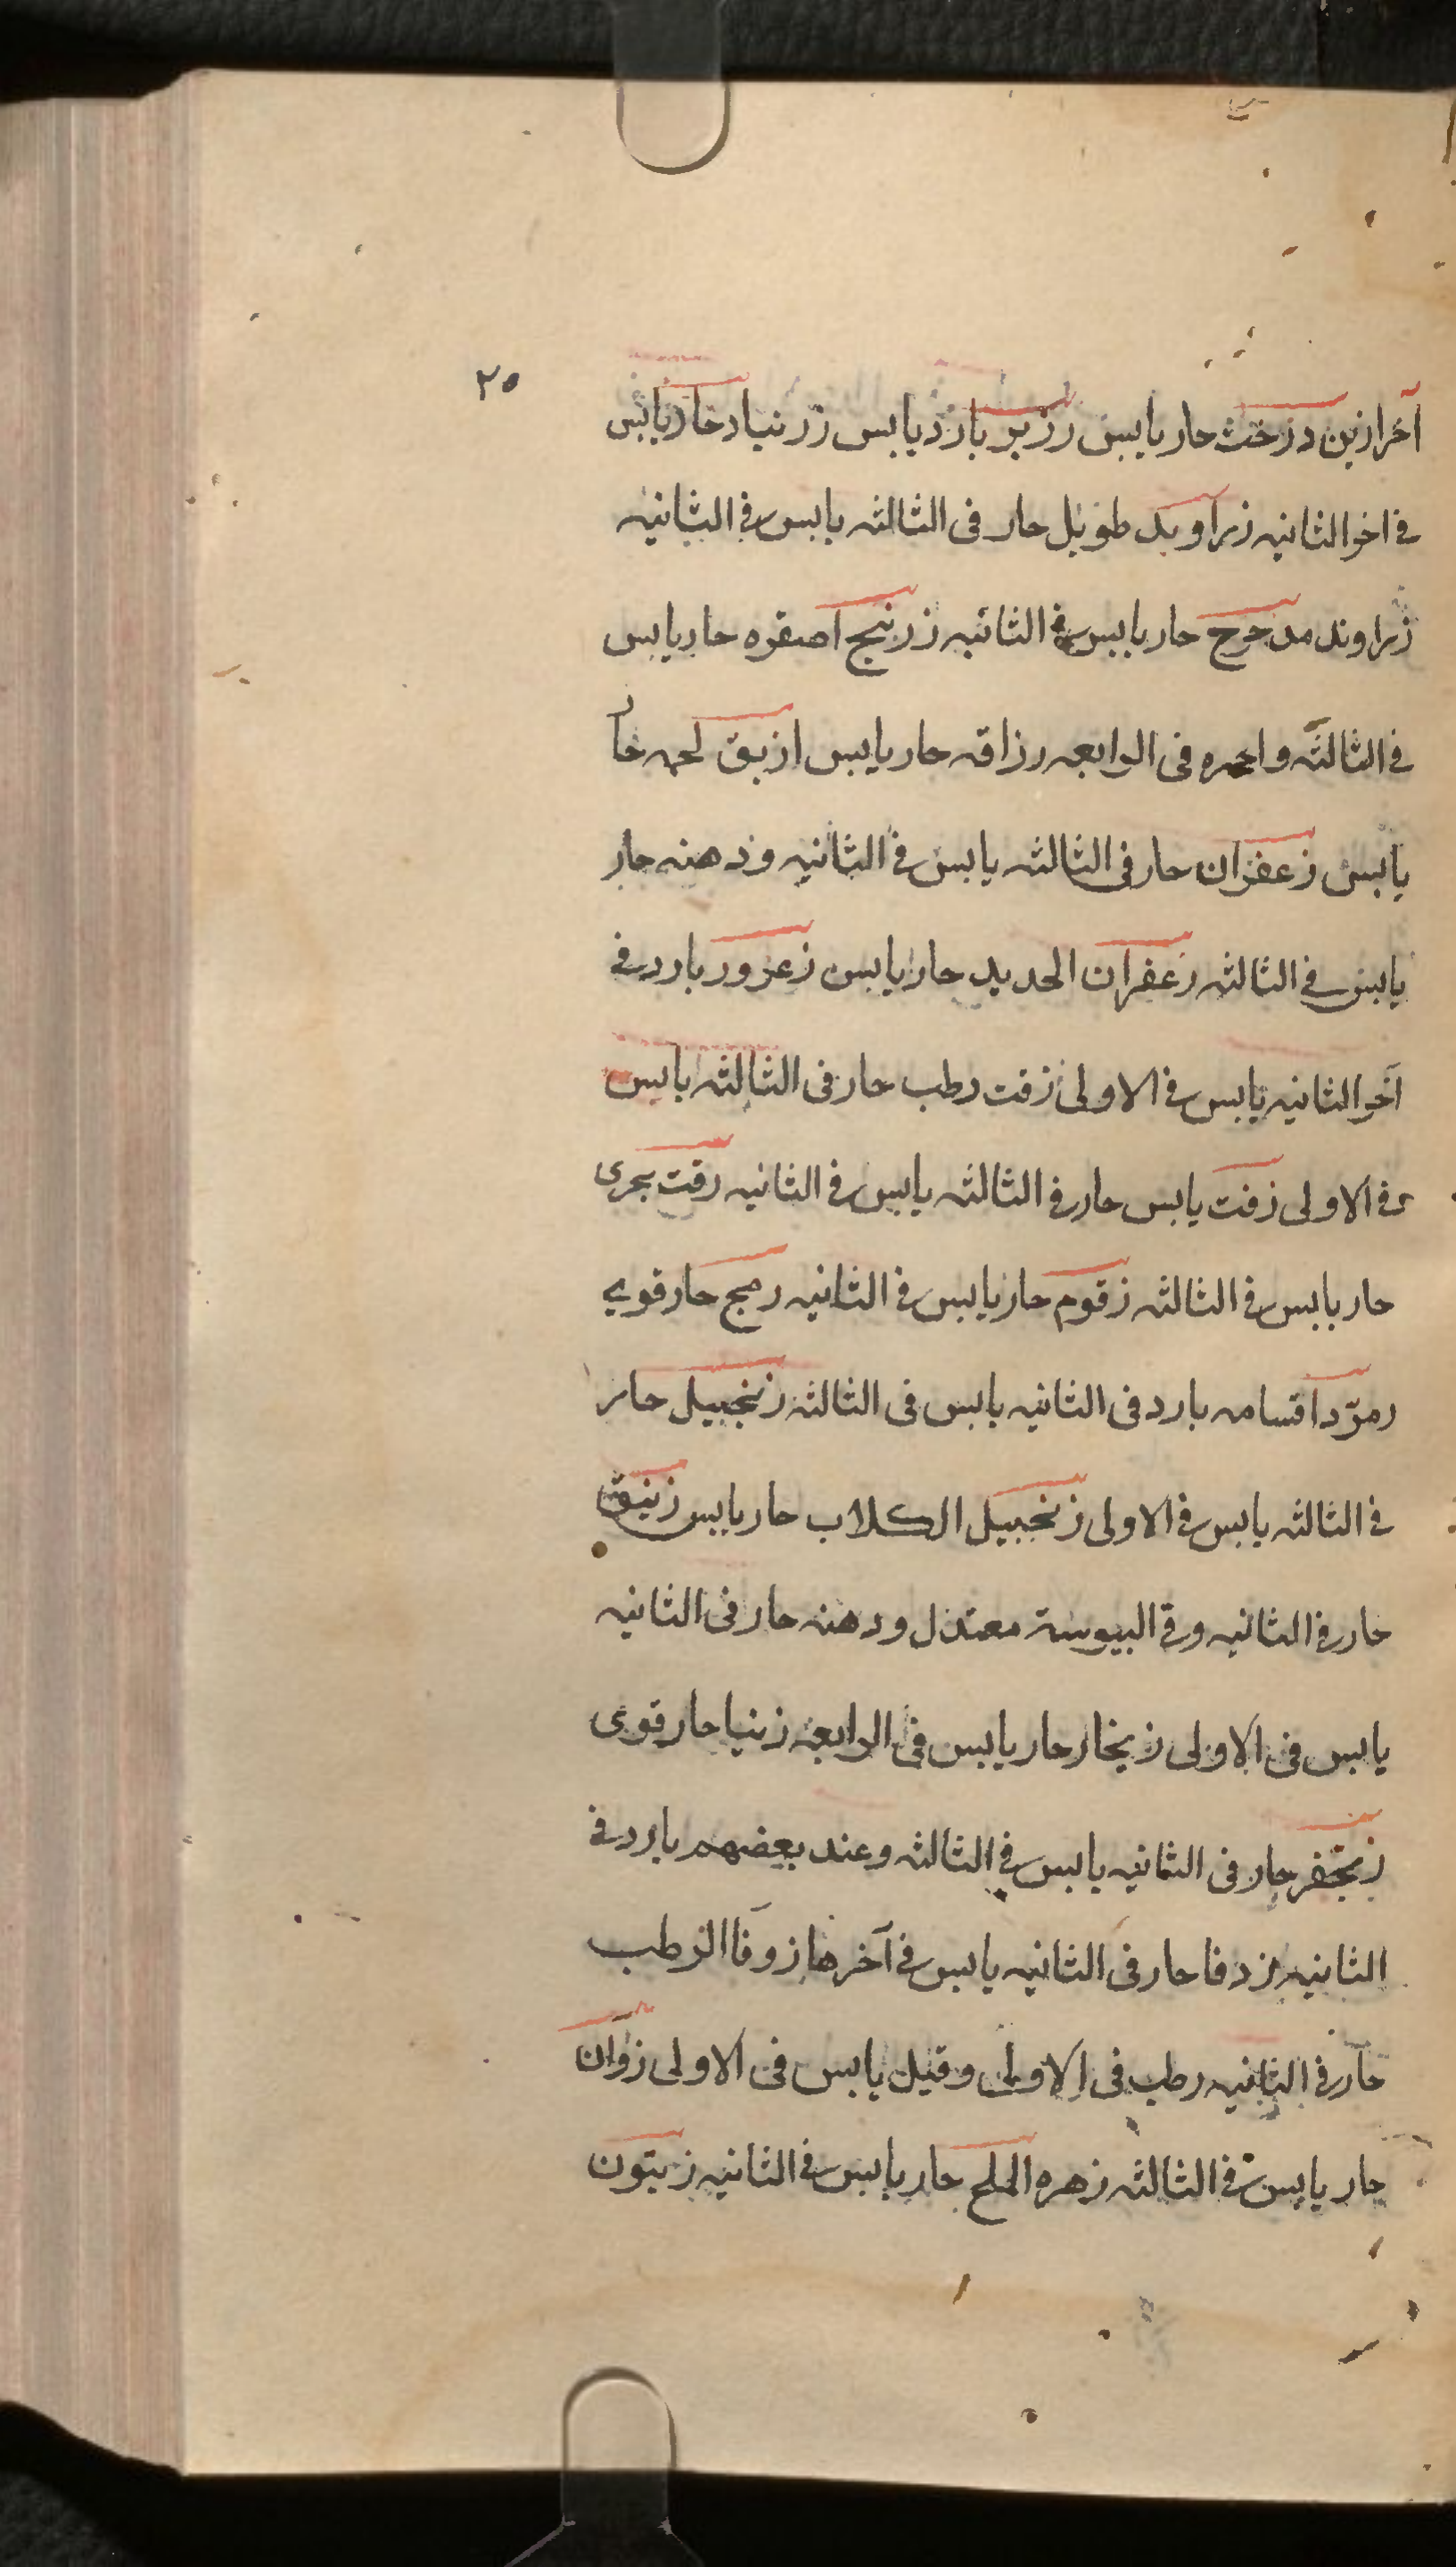 ٢٥
آخر ازين درخت حار يابس رزير بارد يابس زرنباد حار يابس
في اخر الثانيه زراوند طويل حار فى الثالثه يابس في الثانيه
زراوند مدحرج حار يابس في الثانيه زرنيج اصفره حار يابس
في الثالثه واحمره فى الرابعه رزاقه حار يابس ازبق لحمه حار
يابس زعفران حار فى الثالثه يابس في الثانيه ودهنه حار
يابس في الثالثه زعفران الحديد حار يابس زعرور بارد في
آخر الثانيه يابس في الاولى زفت رطب حار فى الثالثه يابس
في الاولى زفت يابس حار في الثالثه يابس في الثانيه زفت بحرى
حار يابس في الثالثه زقوم حار يابس في الثانيه رمج حار قوي
زمرّد اقسامه بارد فى الثانيه يابس فى الثالثه زنجبيل حار
في الثالثه يابس في الاولى زنجبيل الكلاب حار يابس زنبق
حار في الثانيه وفي اليبوسة معتدل ودهنه حار فى الثانيه
يابس فى الاولى زنجار حار يابس فى الرابعه زنيا حار قوى
زنجفر حار فى الثانيه يابس في الثالثه وعند بعضهم بارد في
الثانيه زدفا حار فى الثانيه يابس في آخرها زوفا الرطب
حار في الثانيه رطب فى الاولى وقيل يابس فى الاولى زوان
حار يابس في الثالثه زهره الملح حار يابس في الثانيه زيتون